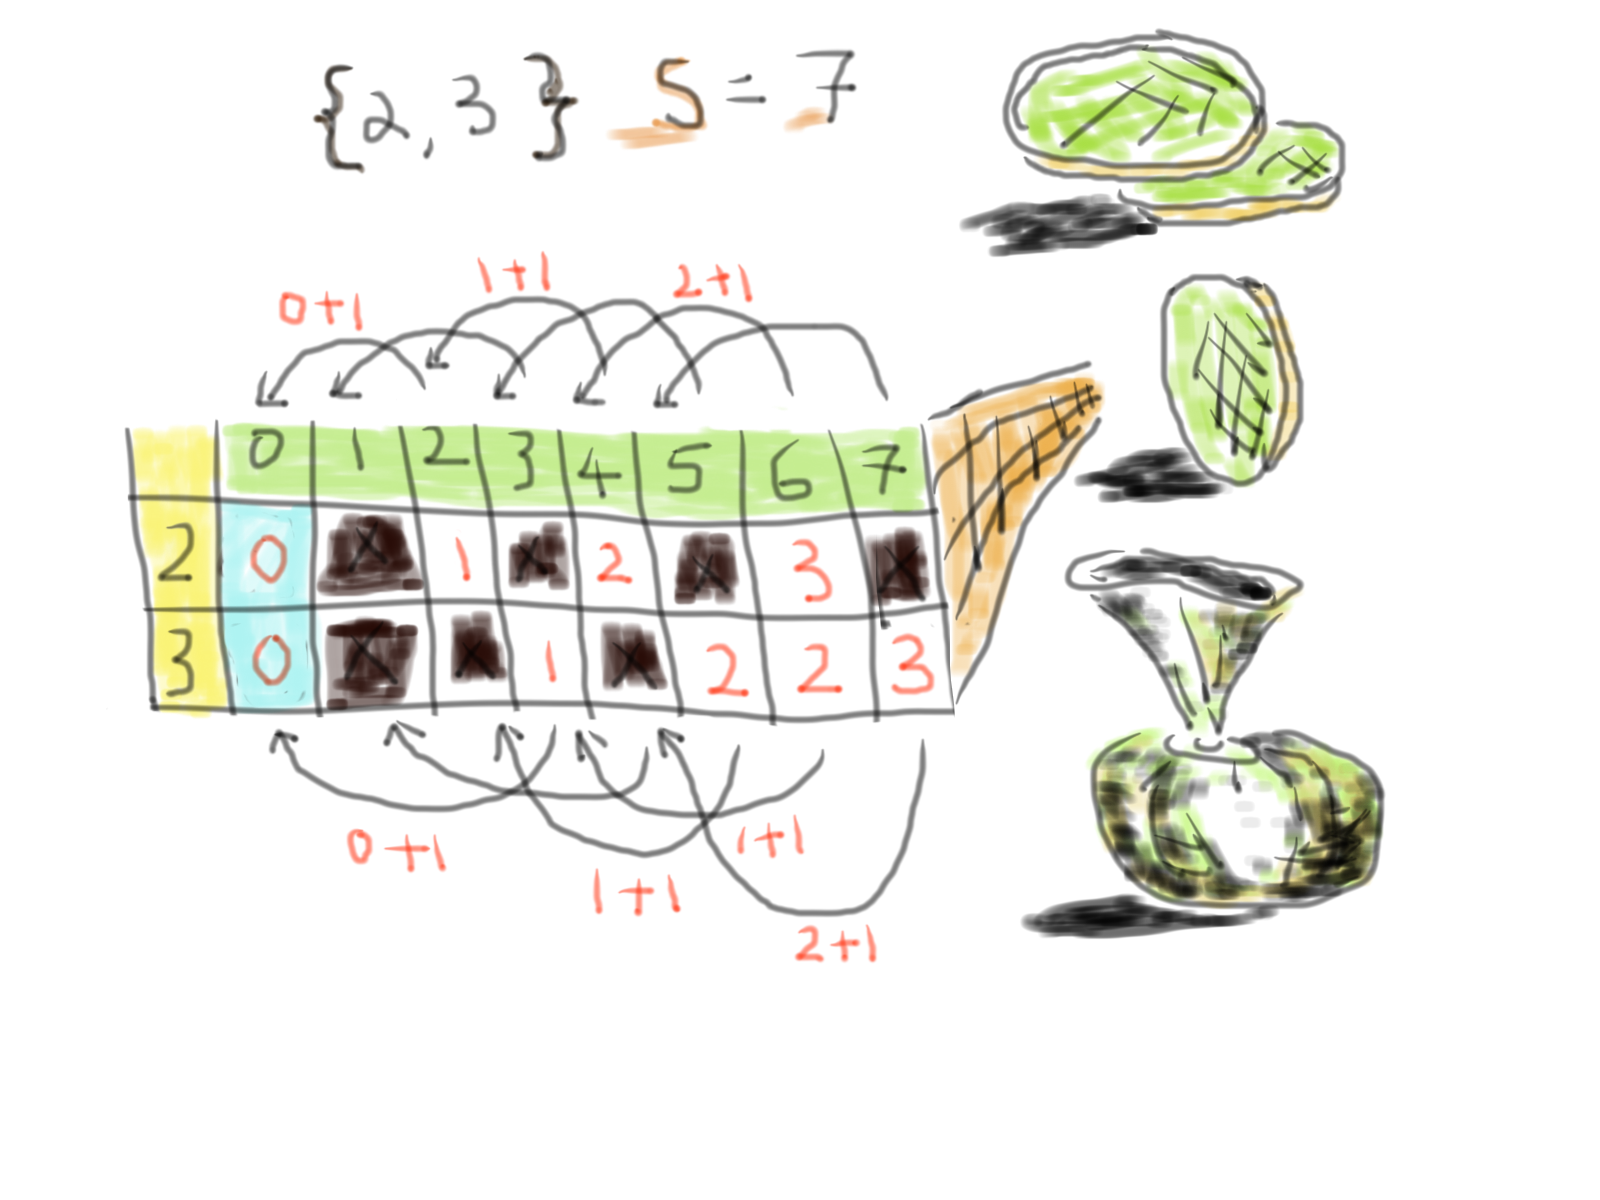 {2, 3} S = 7
0+1 1+1 2+1
0 1 2 3 4 5 6 7
2 0 X 1 X 2 X 3 X
3 0 X X 1 X 2 2 3
0+1 1+1 1+1 2+1